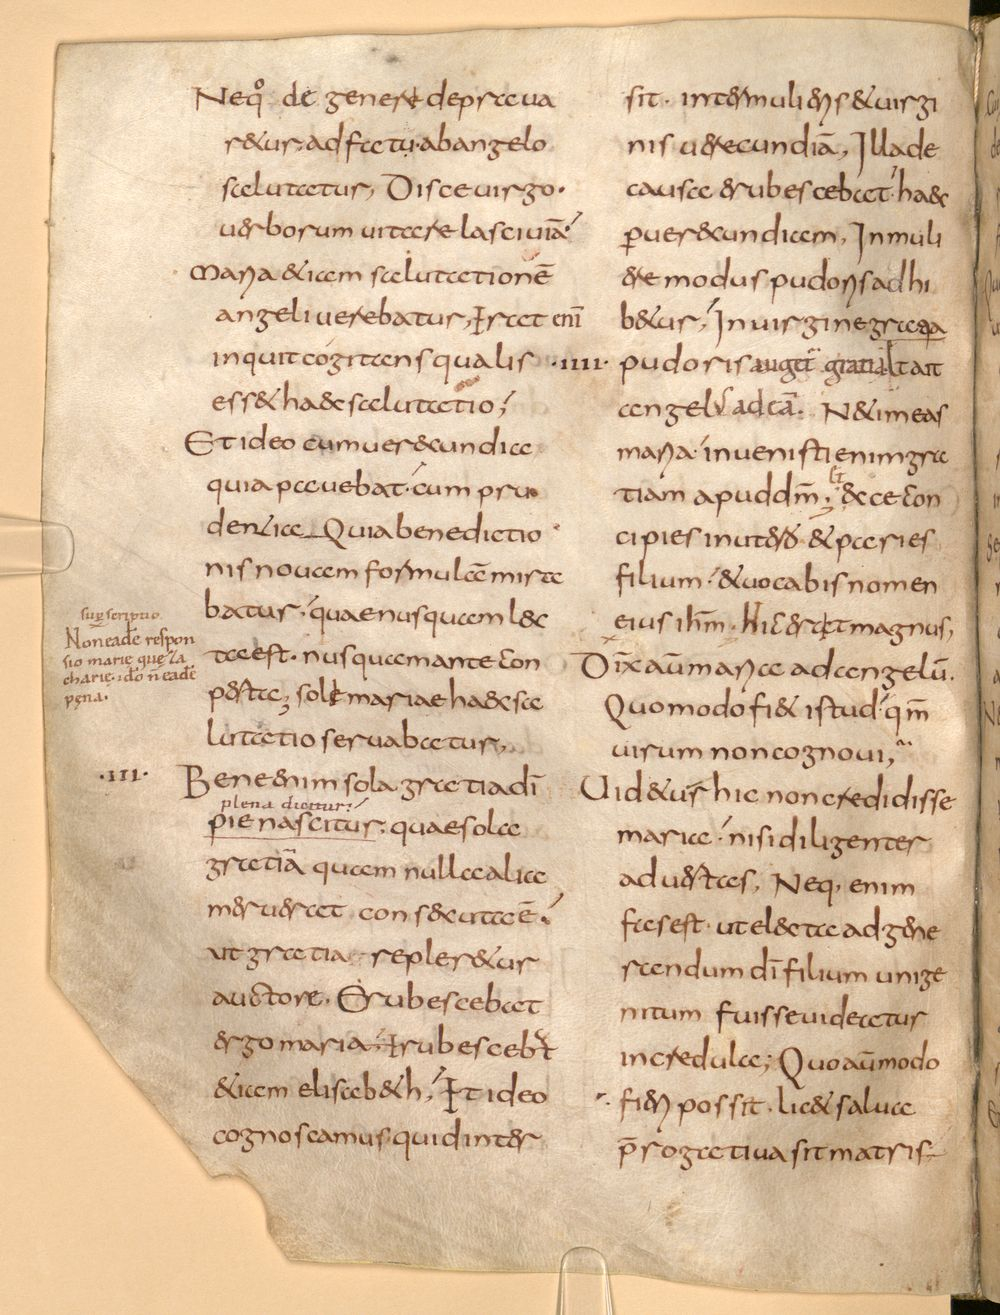 Neqͦ de genere depraua
r&ur; adfectu· abangelo
salutatur, Disce uirgo·
uerborum uitare lasciuiā·
maria &iam salutationē
angeli uerebatur, Erat eni
inquit cogitans qualis
ess& haec salutatio;
Et ideo cum uerecundia
quia pauebat· cum pru
dentia Quia benedictio
nis nouam formulam mira
batur· quae nusquam lec
ta est· nusquam ante con
perta; soli mariae haec sa
lutatio seruabatur,
sup scriptio
Non eadē respon
sio marię quę za
charię· idō ñ eadē
pęna·
·III· Bene enim sola gratia di
plena dicitur;
pie nascitur; quae sola
gratiā quam nulla alia
meruerat consecuta ē·
ut gratia repler&ur
auctore· Erubescebat
ergo maria· Erubescebat
&iam elisab&h, Et ideo
cognoscamus quid inter
sit· inter mulieris & uirgi
nis uerecundiā, Illa de
causa erubescebat· haec
p uerecundiam, In muli
ere modus pudoris adhi
b&ur, In uirgine gratia
·IIII· pudoris auget gratia· at ait
angelus ad eā· Ne timeas
maria· inuenisti enim gra
tiam apud dm̄; & ecce con
cipies in utero & paries
filium· & uocabis nomen
eius ihm̄· Hic erit magnus,
Dix̄ aū maria ad angelū·
Quomodo fi& istud· qm̄
uirum non cognoui,
Uid&ur hic non credidisse
maria· nisi diligenter
aduertas, Neq, enim
fas est· ut electa ad gene
randum dī filium unige
nitum fuisse uideatur
incredula; Quo aū modo
fieri possit· lic& salua
progatiua sit matris